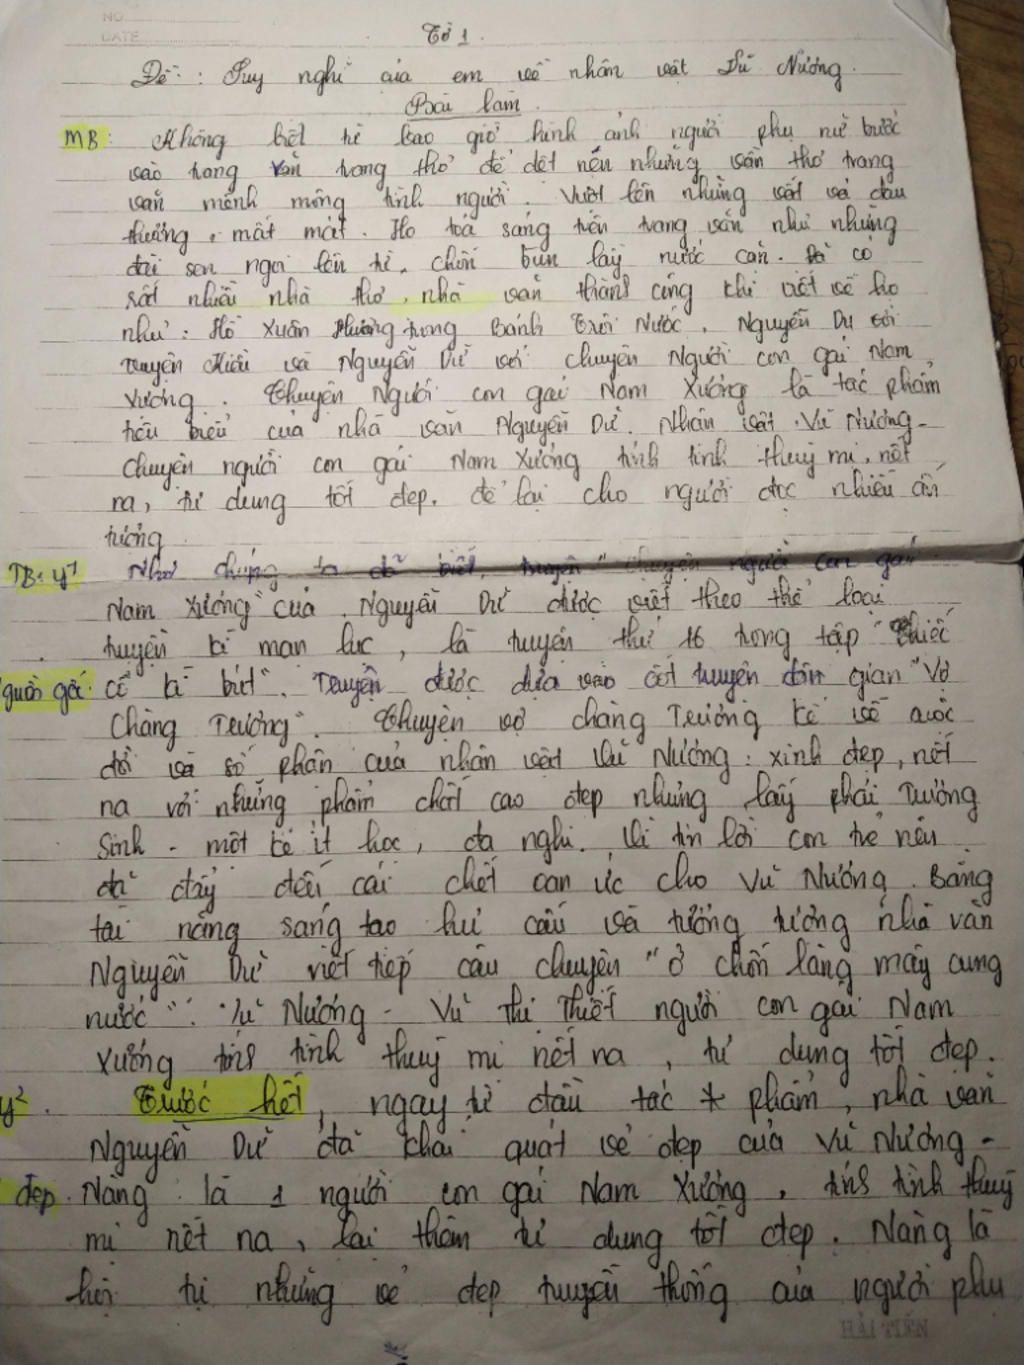 NO
DATE
Tờ 1.
Đề: Suy nghĩ của em về nhân vật Vũ Nương.
Bài làm.
MB: Không biết từ bao giờ hình ảnh người phụ nữ bước
vào trang văn trang thơ để dệt nên những vần thơ trang
văn mênh mông tình người. Vượt lên những vất vả đau
thương, mất mát. Họ toả sáng trên trang văn như những
đài sen ngoi lên từ chốn bùn lầy nước cạn. Đã có
rất nhiều nhà thơ, nhà văn thành công khi viết về họ
như: Hồ Xuân Hương trong Bánh Trôi Nước, Nguyễn Du với
Truyện Kiều và Nguyễn Dữ với chuyện Người con gái Nam
Xương. Chuyện Người con gái Nam Xương là tác phẩm
tiêu biểu của nhà văn Nguyễn Dữ. Nhân vật Vũ Nương -
Chuyện người con gái Nam Xương tính tình thuỳ mị, nết
na, tư dung tốt đẹp. để lại cho người đọc nhiều ấn
tượng
TB: ý1 Như chúng ta đã biết, truyện "Chuyện người con gái
Nam Xương" của Nguyễn Dữ được viết theo thể loại
truyện kì mạn lục, là truyện thứ 16 trong tập "Chiếc
nguồn gốc. cổ kì bút". Truyện được dựa vào cốt truyện dân gian "Vợ
Chàng Trương". Chuyện vợ chàng Trương kể về cuộc
đời và số phận của nhân vật Vũ Nương: xinh đẹp, nết
na với những phẩm chất cao đẹp nhưng lấy phải Trương
Sinh - một kẻ ít học, đa nghi. Vì tin lời con trẻ nên
đã đẩy đến cái chết oan ức cho Vũ Nương. Bằng
tài năng sáng tạo hư cấu và tưởng tượng nhà văn
Nguyễn Dữ viết tiếp câu chuyện "ở chốn làng mây cung
nước". Vũ Nương - Vũ thị Thiết người con gái Nam
Xương tính tình thuỳ mị nết na, tư dung tốt đẹp.
ý2. Trước hết, ngay từ đầu tác phẩm, nhà văn
Nguyễn Dữ đã khái quát vẻ đẹp của Vũ Nương -
đẹp. Nàng là 1 người con gái Nam Xương, tính tình thuỳ
mị nết na, lại thêm tư dung tốt đẹp. Nàng là
hội tụ những vẻ đẹp truyền thống của người phụ
HẢI TIẾN